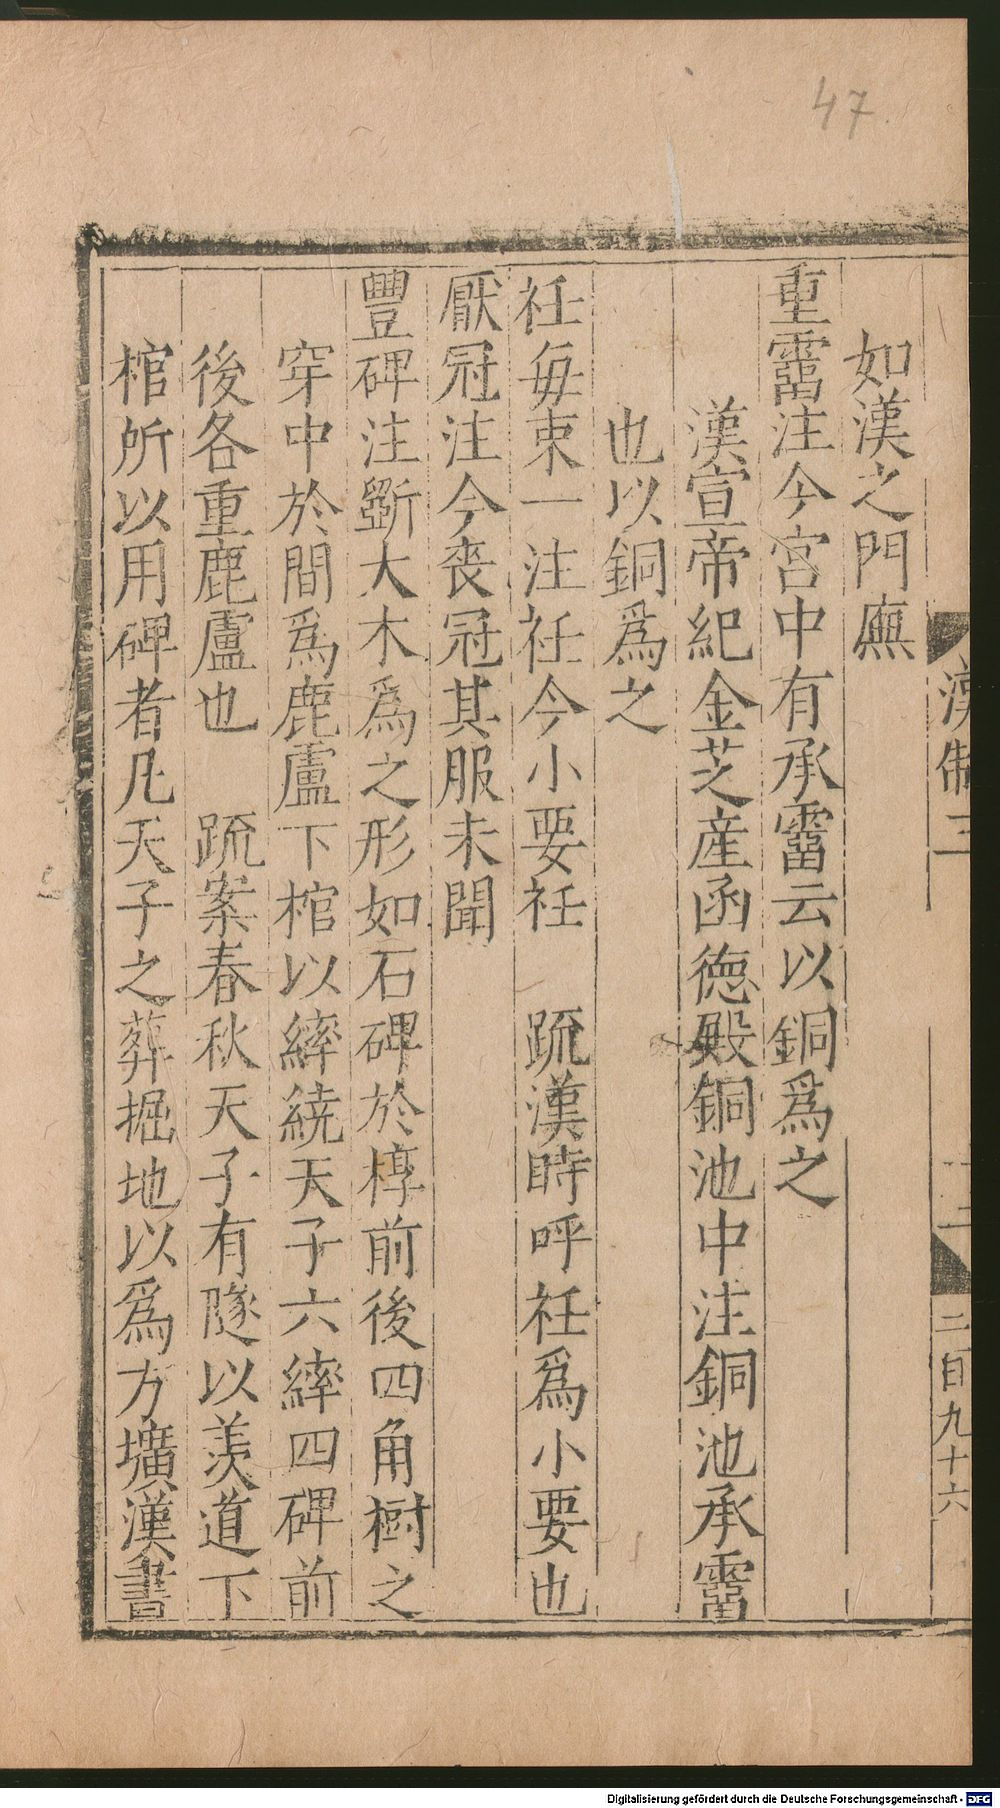 47.
如漢之門廡
重霤注今宮中有承霤云以銅爲之
漢宣帝紀金芝産函德殿銅池中注銅池承霤
也以銅爲之
衽每束一注衽今小要衽　疏漢時呼衽爲小要也
厭冠注今喪冠其服未聞
豐碑注斵大木爲之形如石碑於椁前後四角樹之
穿中於間爲鹿盧下棺以繂繞天子六繂四碑前
後各重鹿盧也　疏案春秋天子有隧以羨道下
棺所以用碑者凡天子之葬掘地以爲方壙漢書
漢制三
二百九十六
Digitalisierung gefördert durch die Deutsche Forschungsgemeinschaft - DFG